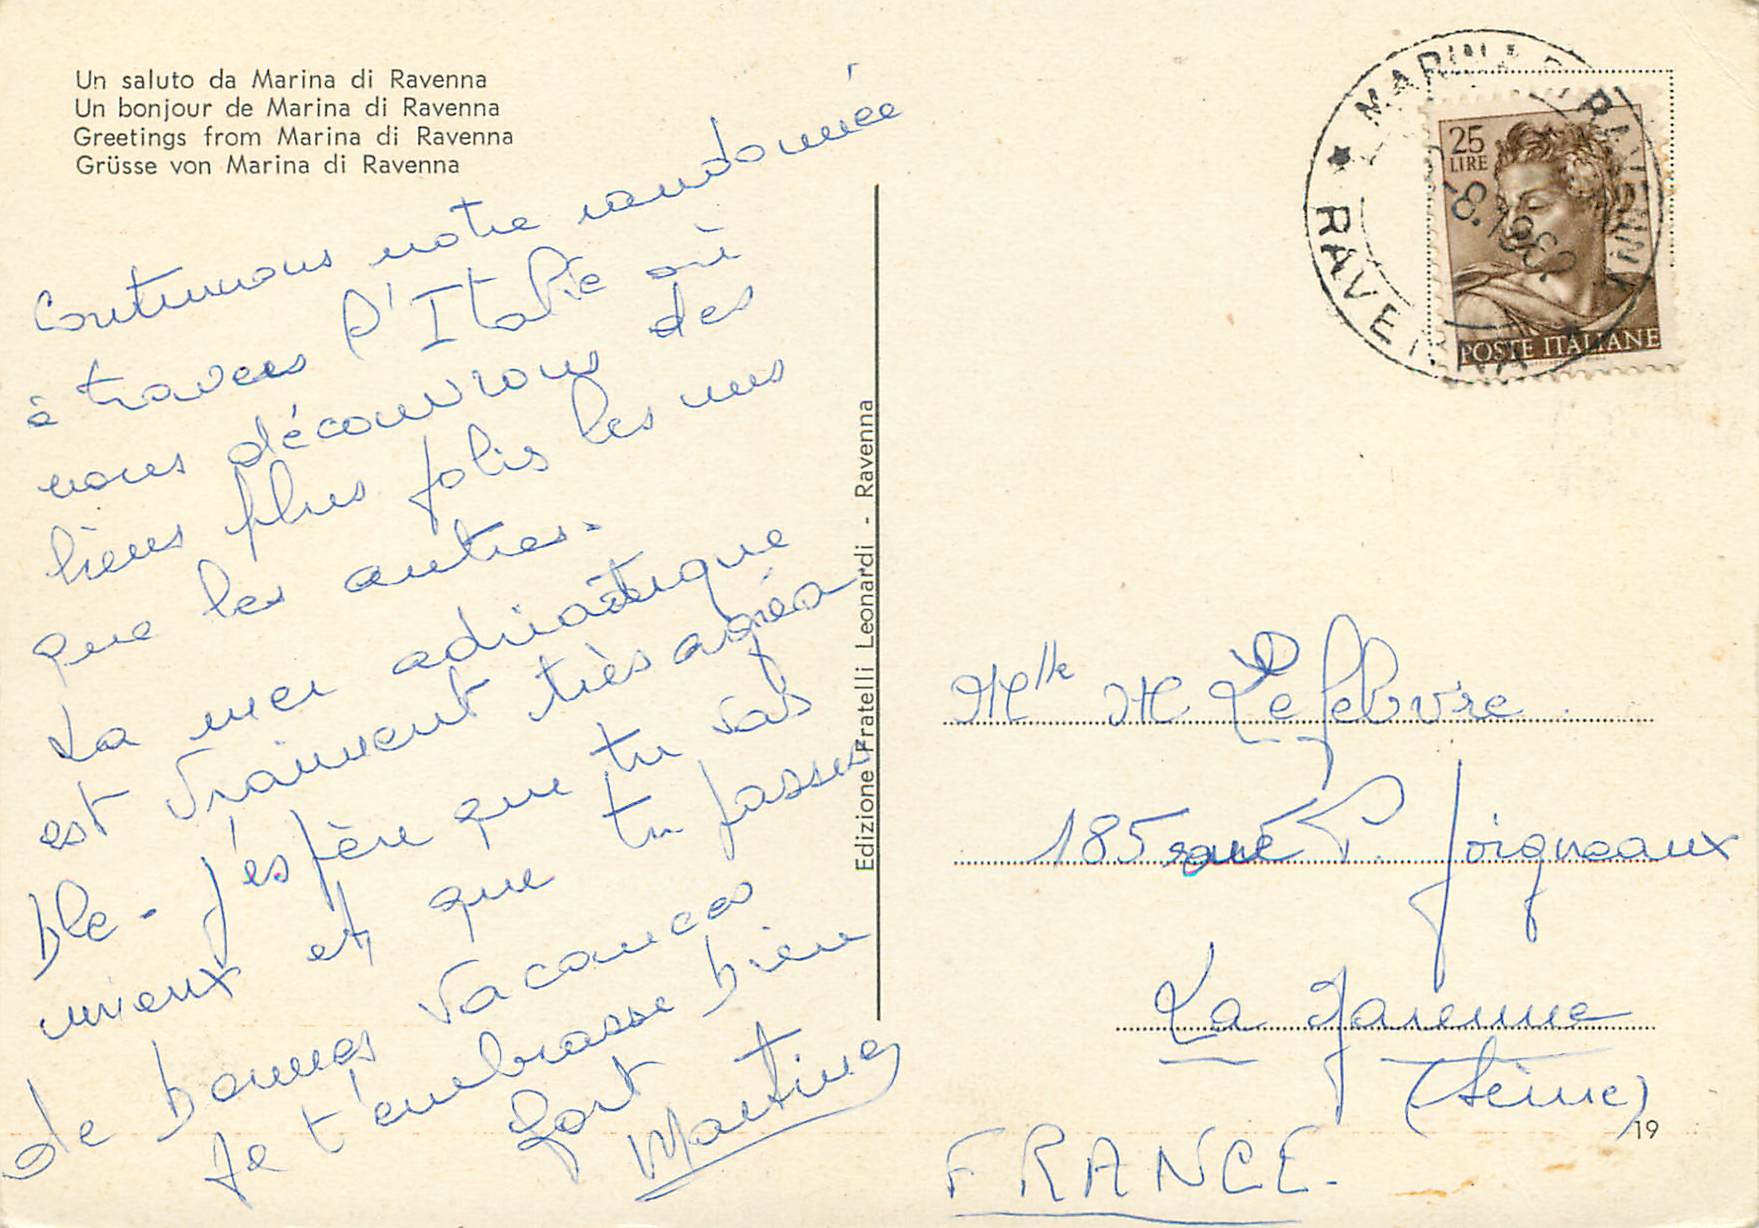 Un saluto da Marina di Ravenna
Un bonjour de Marina di Ravenna
Greetings from Marina di Ravenna
Grüsse von Marina di Ravenna
Continuons notre randonnée
à travers l'Italie où
nous découvrons des
liens plus jolis les uns
que les autres.
La mer adriatique
est vraiment très agréa
ble. J'espère que tu vas
mieux et que tu passes
de bonnes vacances
Je t'embrasse bien
fort
Martine
Edizione Fratelli Leonardi - Ravenna
MARINA DI RAVENNA
★ RAVENNA
8.1962
25
LIRE
POSTE ITALIANE
Mlle M Lefebvre
185 rue P. Joigneaux
La Garenne
(Seine)
FRANCE.
19